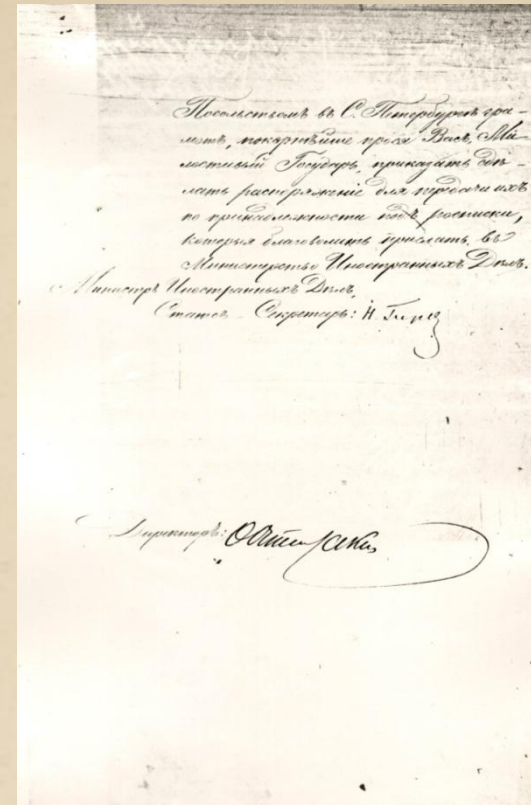 Посольствомъ въ С. Петербургѣ гра-
мотъ, покорнѣйше прося Васъ, Ми-
лостивый Государь, приказать сдѣ-
лать распоряженіе для передачи ихъ
по принадлежности подъ росписки,
которыя благоволить прислать въ
Министерство Иностранныхъ Дѣлъ.
Министръ Иностранныхъ Дѣлъ,
Статсъ-Секретарь: Н. Гирсъ
Директоръ: